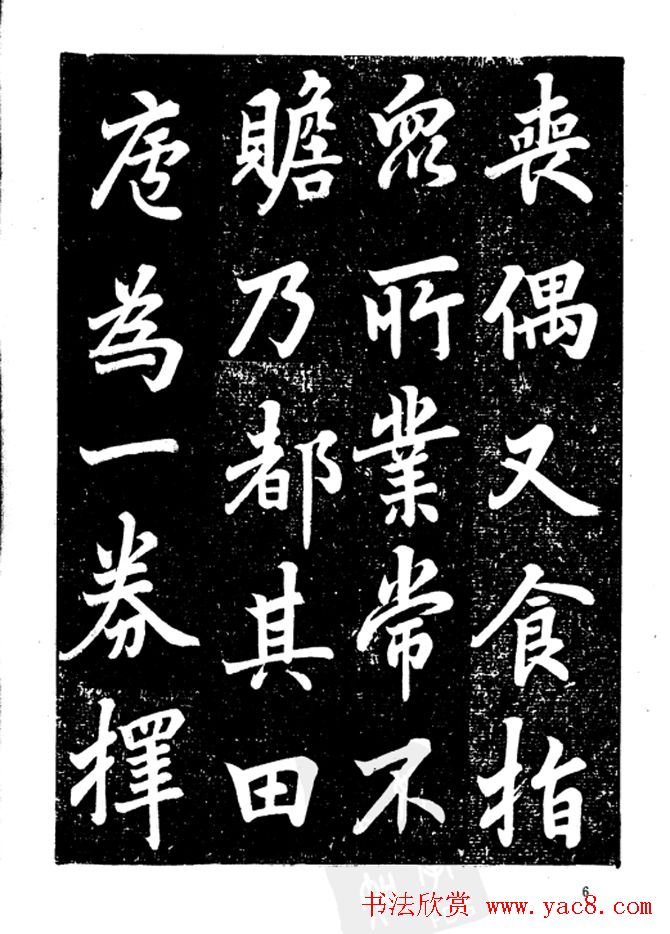 喪偶又食指
眾所業常不
贍乃都其田
廬為一券擇
6
书法欣赏 www.yac8.com